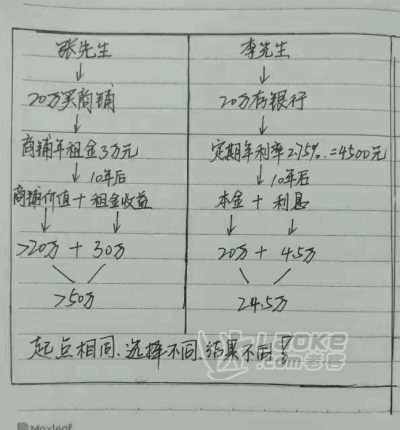 张先生
20万买商铺
商铺年租金3万元
10年后
商铺价值+租金收益
>20万 + 30万
>50万
李先生
20万存银行
定期年利率2.25%.=4500元
10年后
本金 + 利息
20万 + 4.5万
24.5万
起点相同、选择不同、结果不同!
Laoke.com
老客
Maxleaf